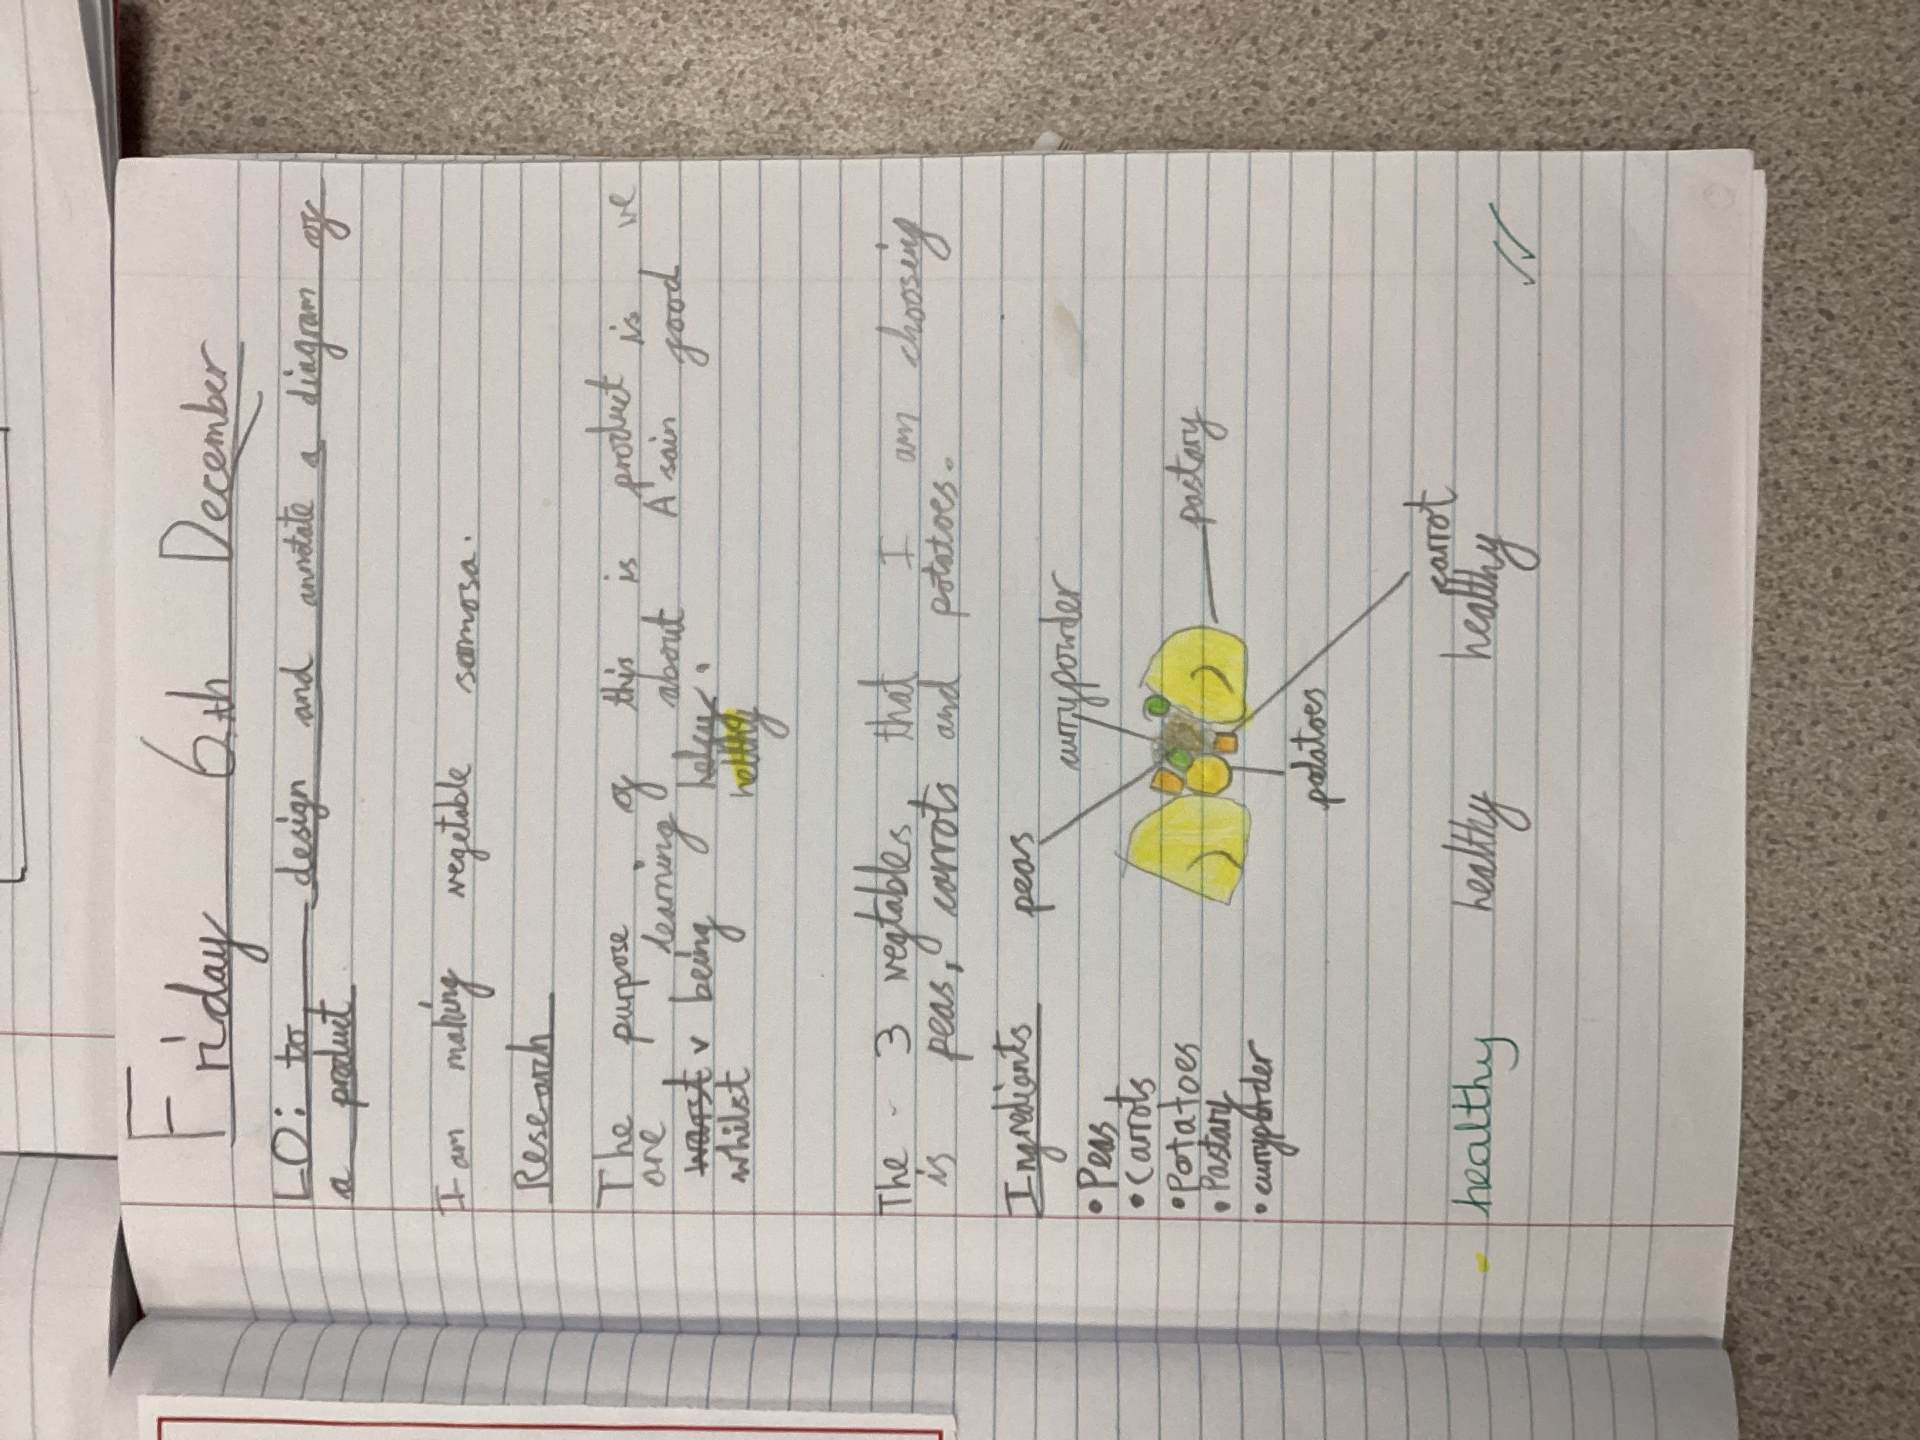 Friday 6th December
LO: to design and annotate a diagram of
a product
I am making vegetable samosa.
Research
The purpose of this is product is we
are learning about Asain good
warst v being heley.
whilst helthy
The 3 vegtables that I am choosing
is peas, carrots and potatoes.
Ingrediants
peas
currypowder
• Peas
• Carrots
• Potatoes
• Pastary
• currypowder
pastary
potatoes
carrot
healthy healthy healthy